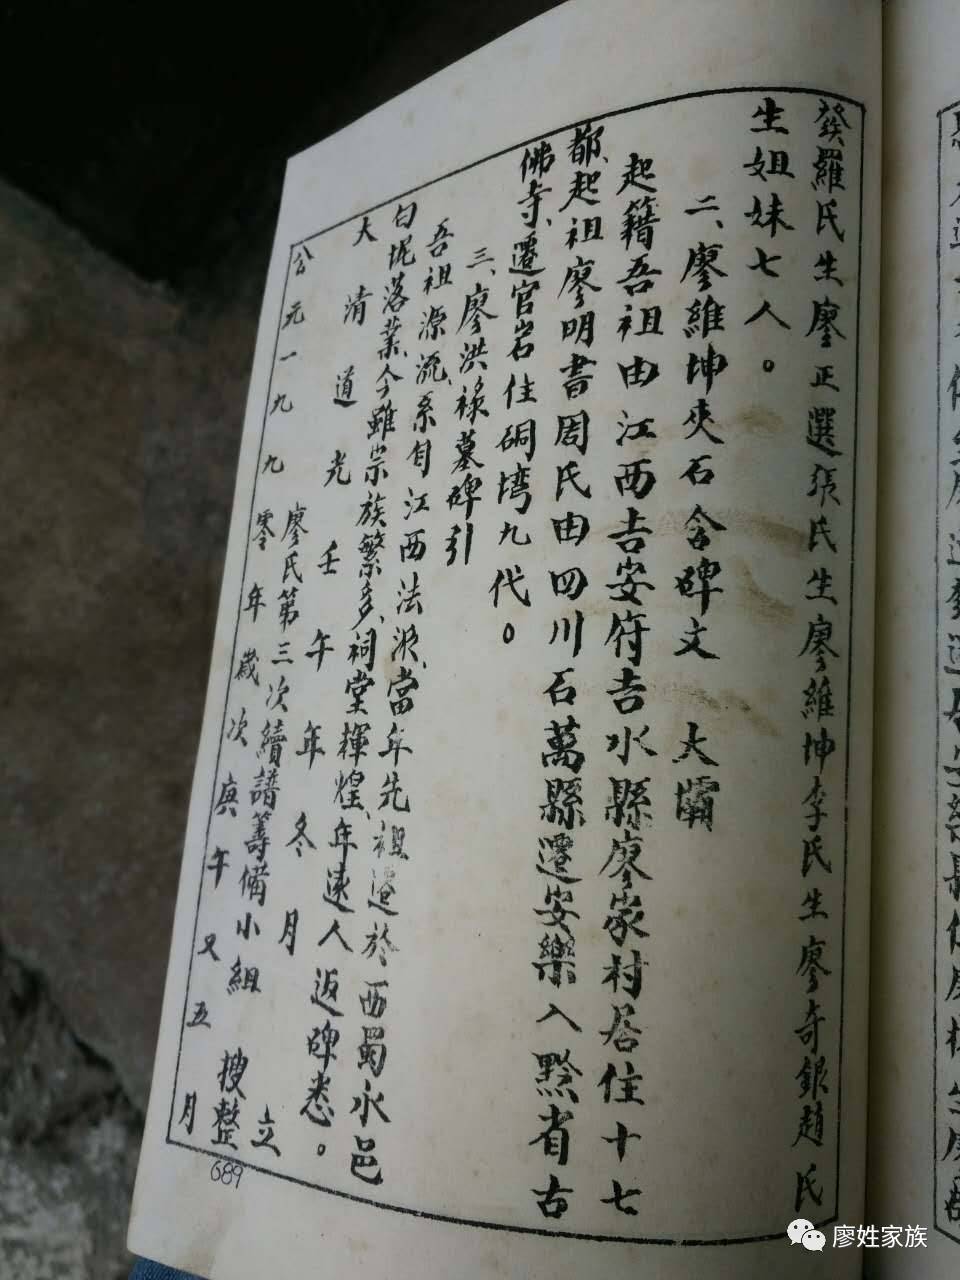 發羅氏生廖正選張氏生廖維坤李氏生廖奇銀趙氏
生姐妹七人。
二、廖維坤夾石含碑文 大壩
起籍吾祖由江西吉安符吉水縣廖家村居住十七
都、起祖廖明書周氏由四川石萬縣遷安樂入黔省古
佛寺、遷官岩住硐塆九代。
三、廖洪祿墓碑引
吾祖源流、系自江西法派、當年先祖遷於西蜀永邑
白坭落業、今雖崇族繁多、祠堂輝煌、年遠人返碑悉。
大清道光壬午年冬月 立
廖氏第三次續譜籌備小組 搜整
公元一九九零年歲次庚午又五月
689
廖姓家族